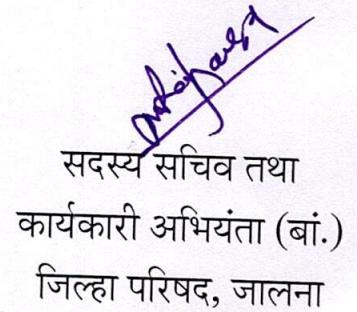 सदस्य सचिव तथा
कार्यकारी अभियंता (बां.)
जिल्हा परिषद, जालना